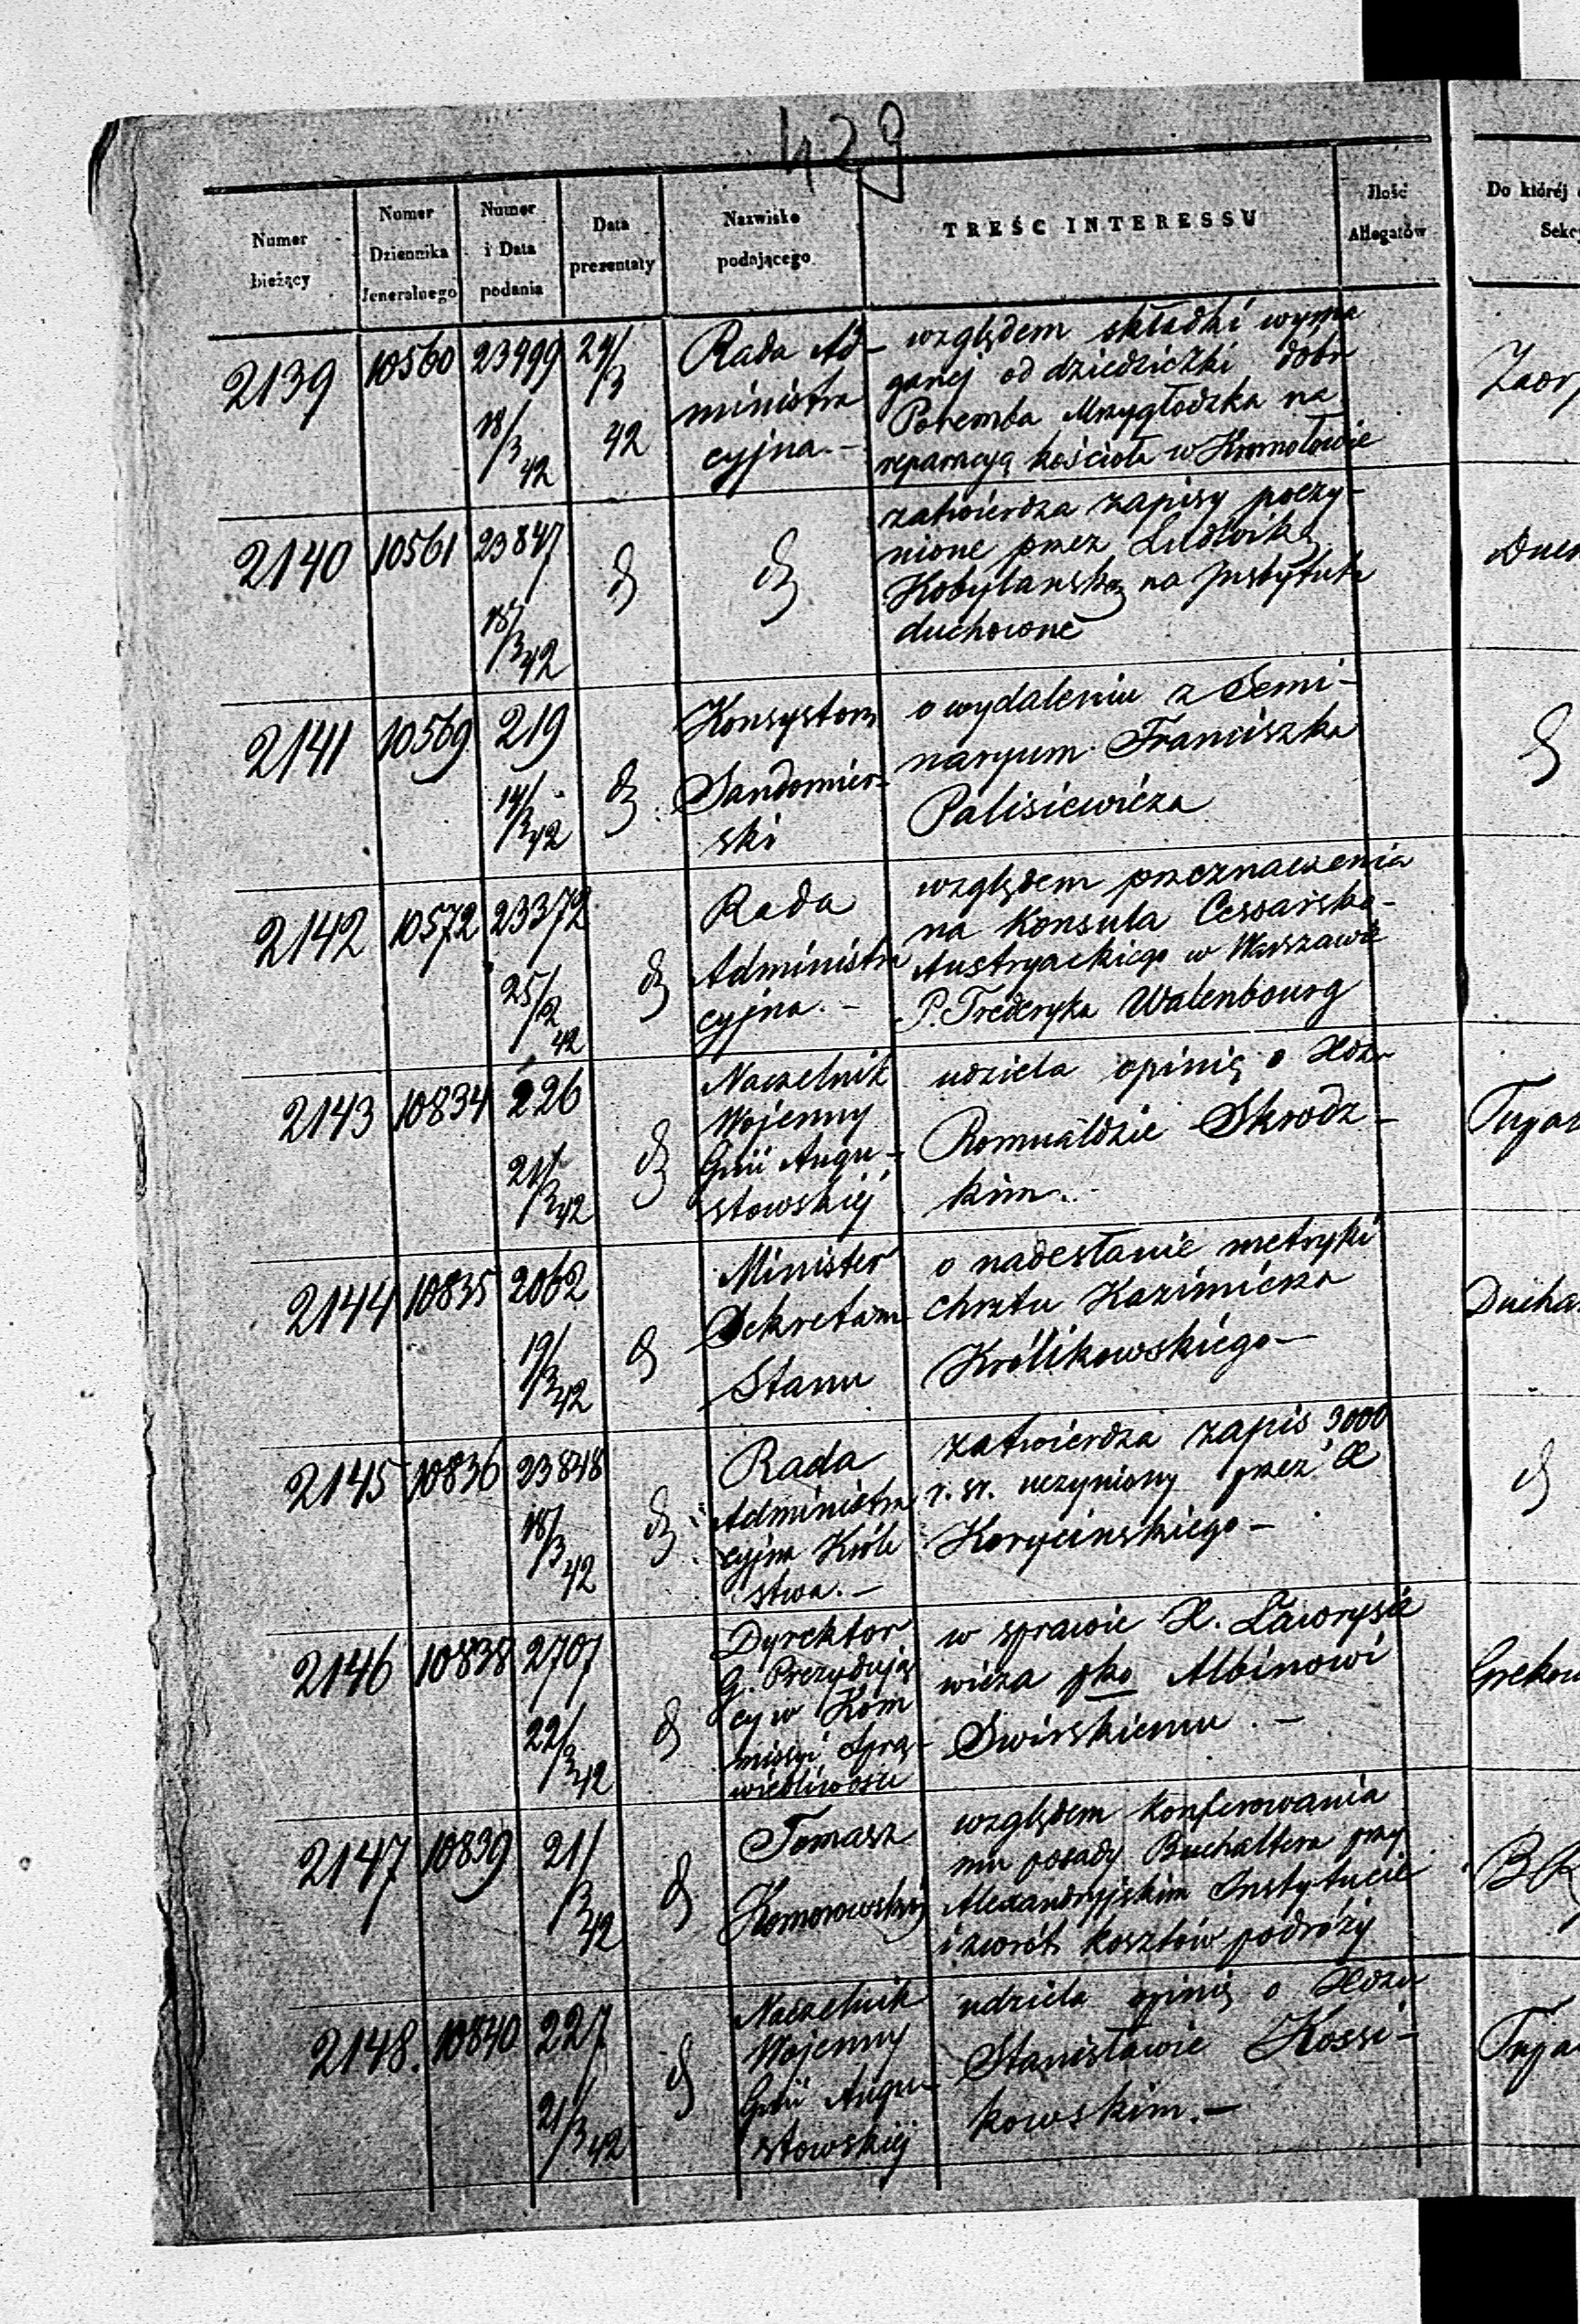 429
Numer bieżący
Numer Dziennika Jeneralnego
Numer i Data podania
Data prezentaty
Nazwisko podającego
TREŚC INTERESSU
Ilość Allegatów
Do któréj
Sekcy
2139 10560 23999 18/3 42 24/3 42
Rada Ad-
ministra
cyjna.-
względem składki wyma
ganej od dziedziczki dobr
Poremba Mrzygłodzka na
reparacyą kościoła w Kromołowie
2140 10561 23847 18/3 42
zatwierdza zapisy poczy-
nione przez Ludwikę
Kobylańską na Instytuta
duchowne
2141 10569 219 14/3 42
Konsystorz
Sandomier-
ski
o wydaleniu z Semi-
naryum Franciszka
Palisiewicza
2142 10572 23372 25/2 42
Rada
Administra
cyjna.-
względem przeznaczenia
na Konsula Cesarsko-
Austryackiego w Warszawie
P. Frederyka Walenbourg
2143 10834 226 21/3 42
Naczelnik
Wojenny
Gnii Augu-
stowskiéj
udziela opinię o Xdzu
Romualdzie Skrodz-
kim.-
2144 10835 2062 19/3 42
Minister
Sekretarz
Stanu
o nadesłanie metryki
chrztu Kazimierza
Królikowskiego-
Ducho
2145 10836 23848 18/3 42
Rada
Administra
cyjna Króle
stwa.-
zatwierdza zapis 3000
r. sr. uczyniony przez X
Korycinskiego-
2146 10838 2707 22/3 42
Dyrektor
G. Prezydują
cy w Kom
missyi Spra-
wiedliwości
w sprawie X. Ławrysie
wicza pko Albinowi
Swirskiemu.-
2147 10839 21/3 42
Tomasz
Komorowski
względem konferowania
mu posady Buchaltera przy
Alexandryjskim Instytucie
i zwrot kosztów podróży
2148. 10840 227 21/3 42
Naczelnik
Wojenny
Gnii Augu-
stowskiéj
udziela opinię o Xdzu
Stanisławie Kossi-
kowskim.-